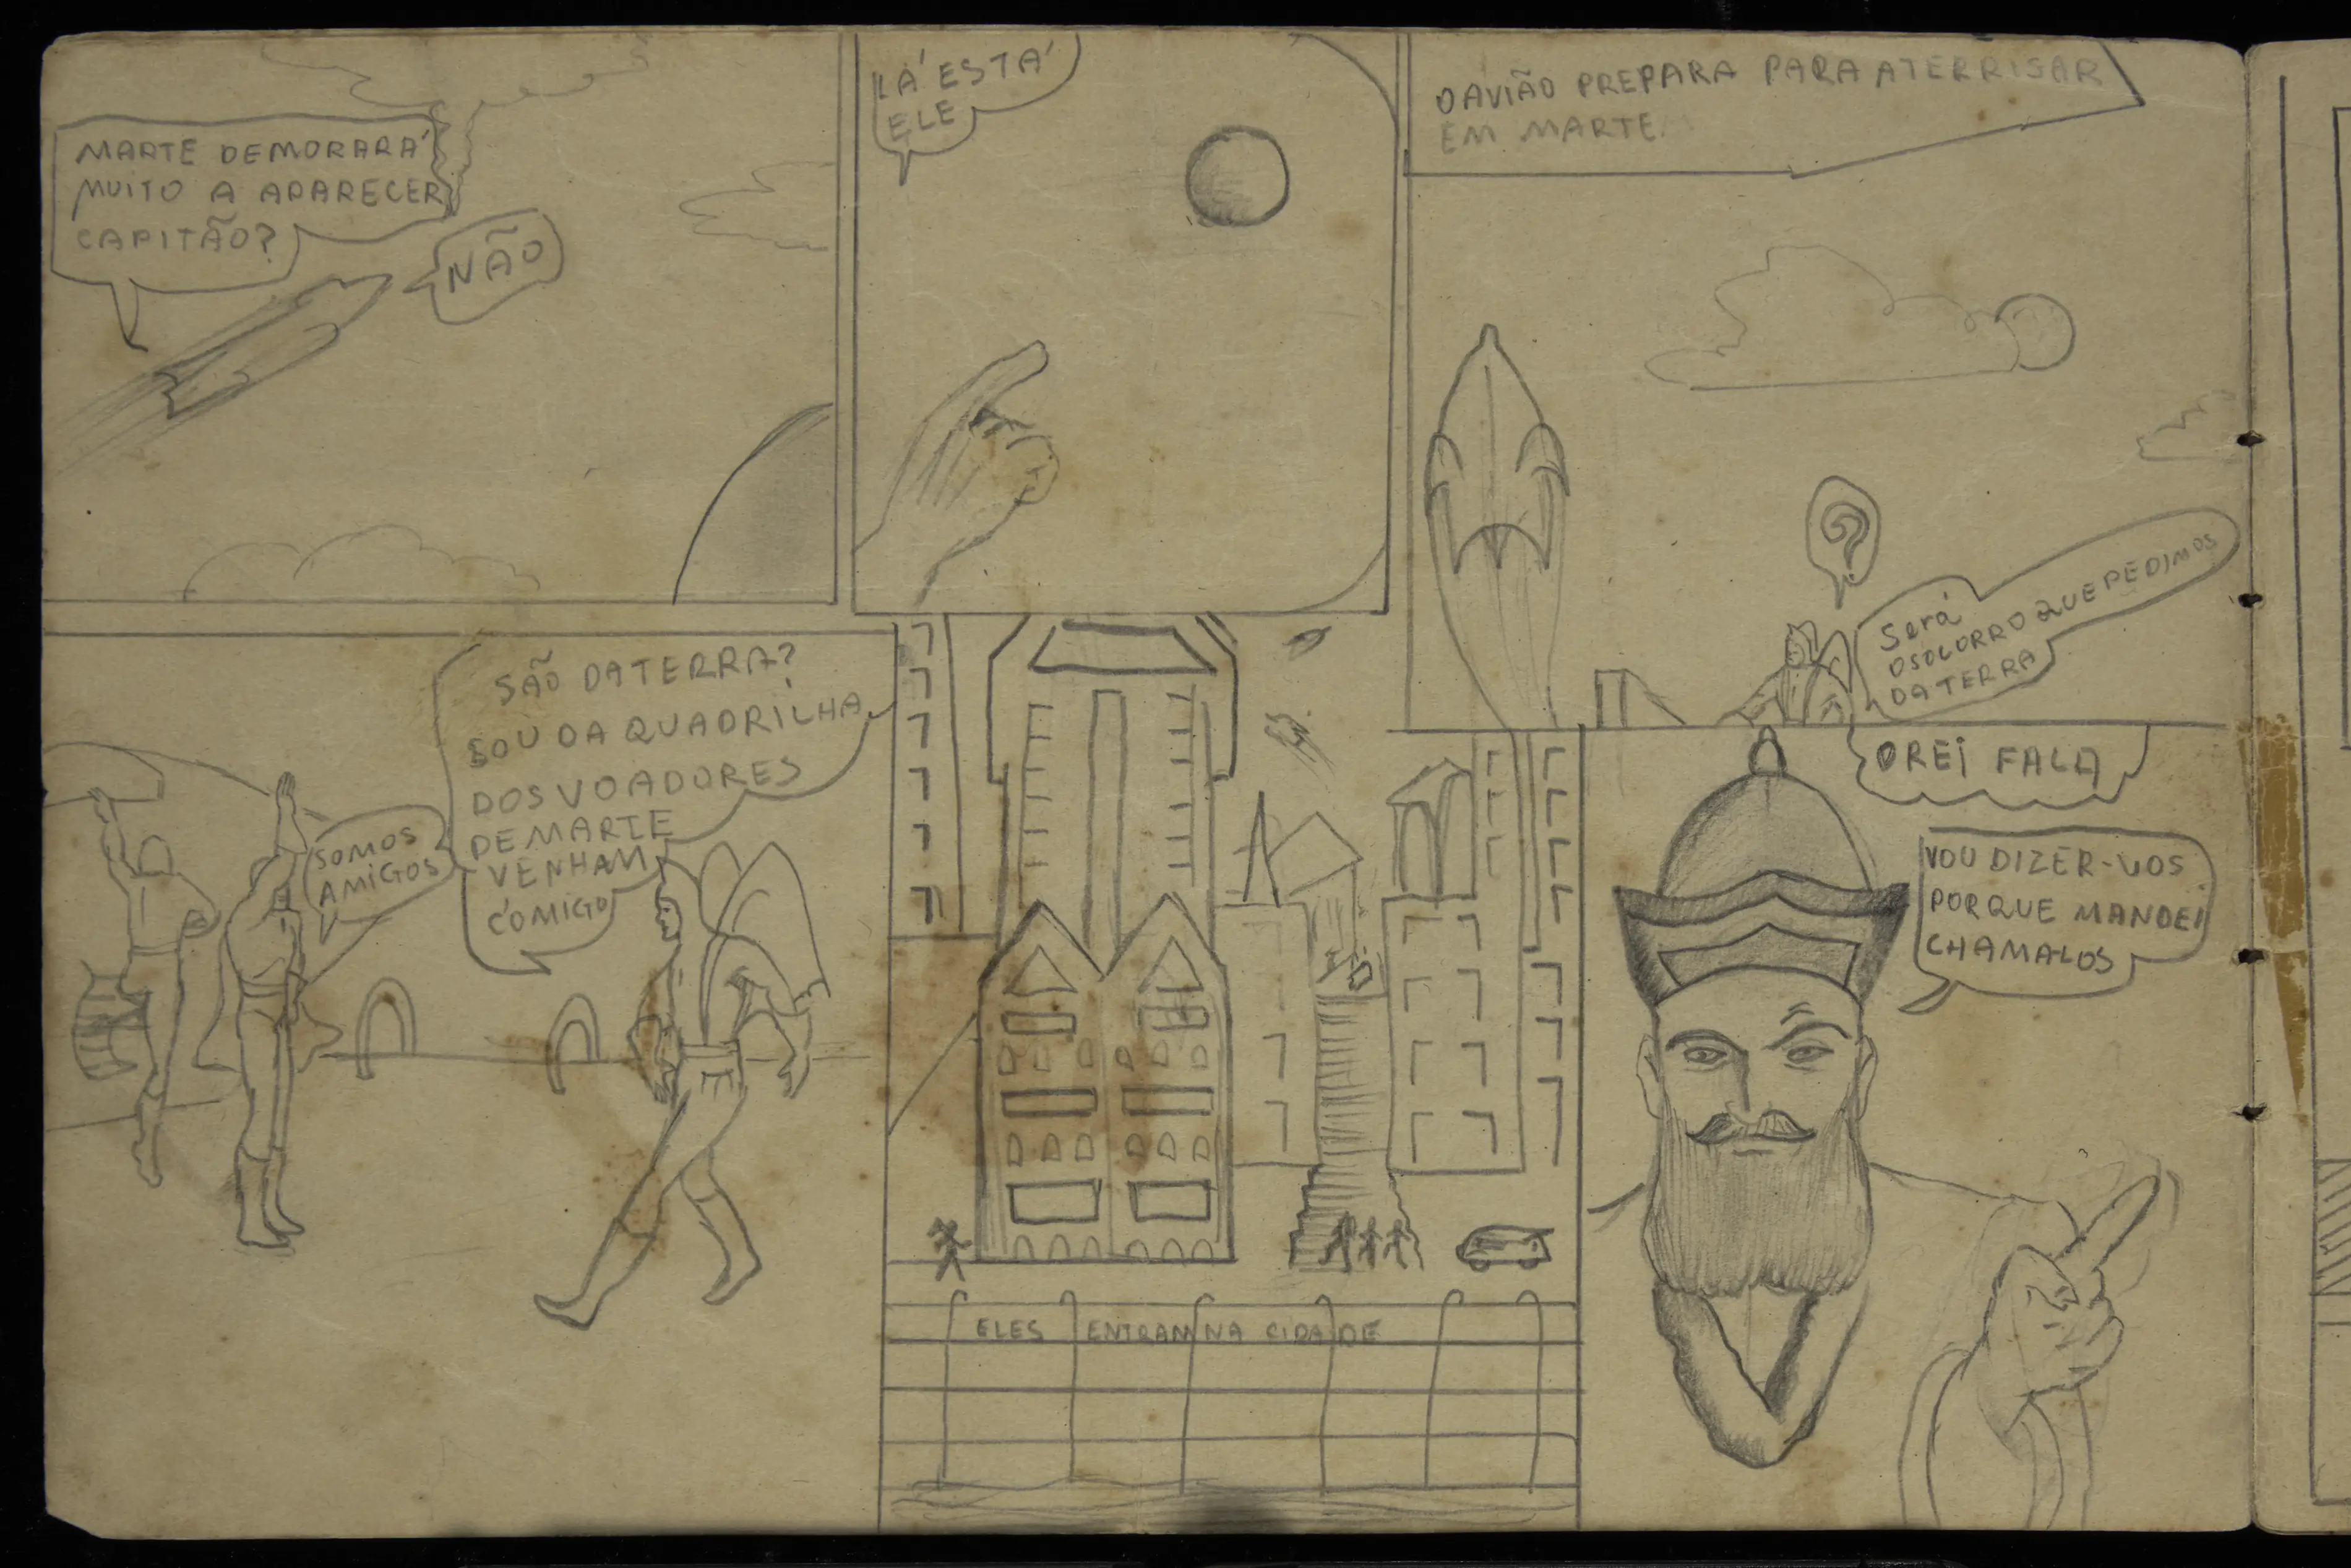 MARTE DEMORARÁ
MUITO A APARECER
CAPITÃO?
NÃO
LÁ ESTÁ
ELE
O AVIÃO PREPARA PARA ATERRISAR
EM MARTE
?
Será
O SOCORRO QUE PEDIMOS
DA TERRA
SOMOS
AMIGOS
SÃO DA TERRA?
SOU DA QUADRILHA
DOS VOADORES
DE MARTE
VENHAM
COMIGO
ELES ENTRAM NA CIDADE
O REI FALA
VOU DIZER-VOS
PORQUE MANDEI
CHAMA-LOS